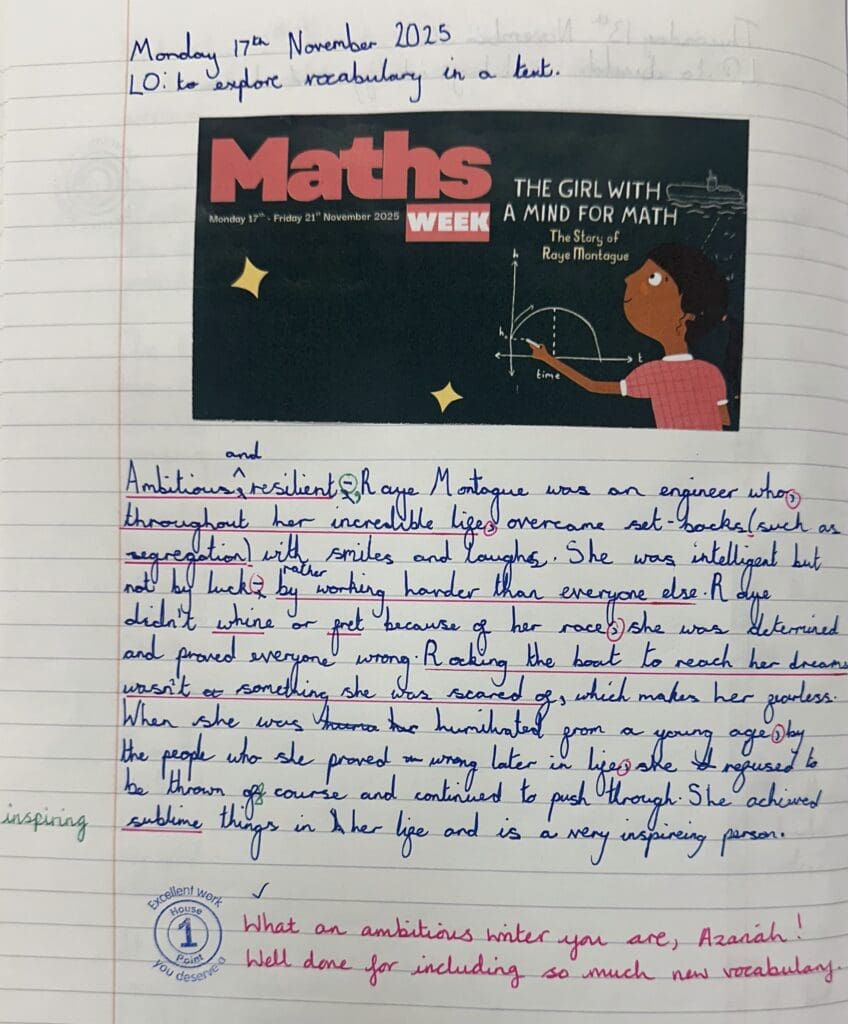 Monday 17th November 2025
LO: to explore vocabulary in a text.
Maths
Monday 17th - Friday 21st November 2025 WEEK
THE GIRL WITH
A MIND FOR MATH
The Story of
Raye Montague
h
h₀
t
time
and
Ambitious ^ resilient -, Raye Montague was an engineer who,
throughout her incredible life, overcame set-backs (such as
segregation) with smiles and laughs. She was intelligent but
rather
not by luck - by working harder than everyone else. Raye
didn't whine or fret because of her race; she was determined
and proved everyone wrong. Rocking the boat to reach her dreams
wasn't something she was scared of, which makes her fearless.
When she was humiliated from a young age, by
the people who she proved wrong later in life, she refused to
be thrown off course and continued to push through. She achieved
inspiring
sublime things in her life and is a very inspireing person.
Excellent work
House
1
Point
you deserve a
✓
What an ambitious writer you are, Azariah!
Well done for including so much new vocabulary.